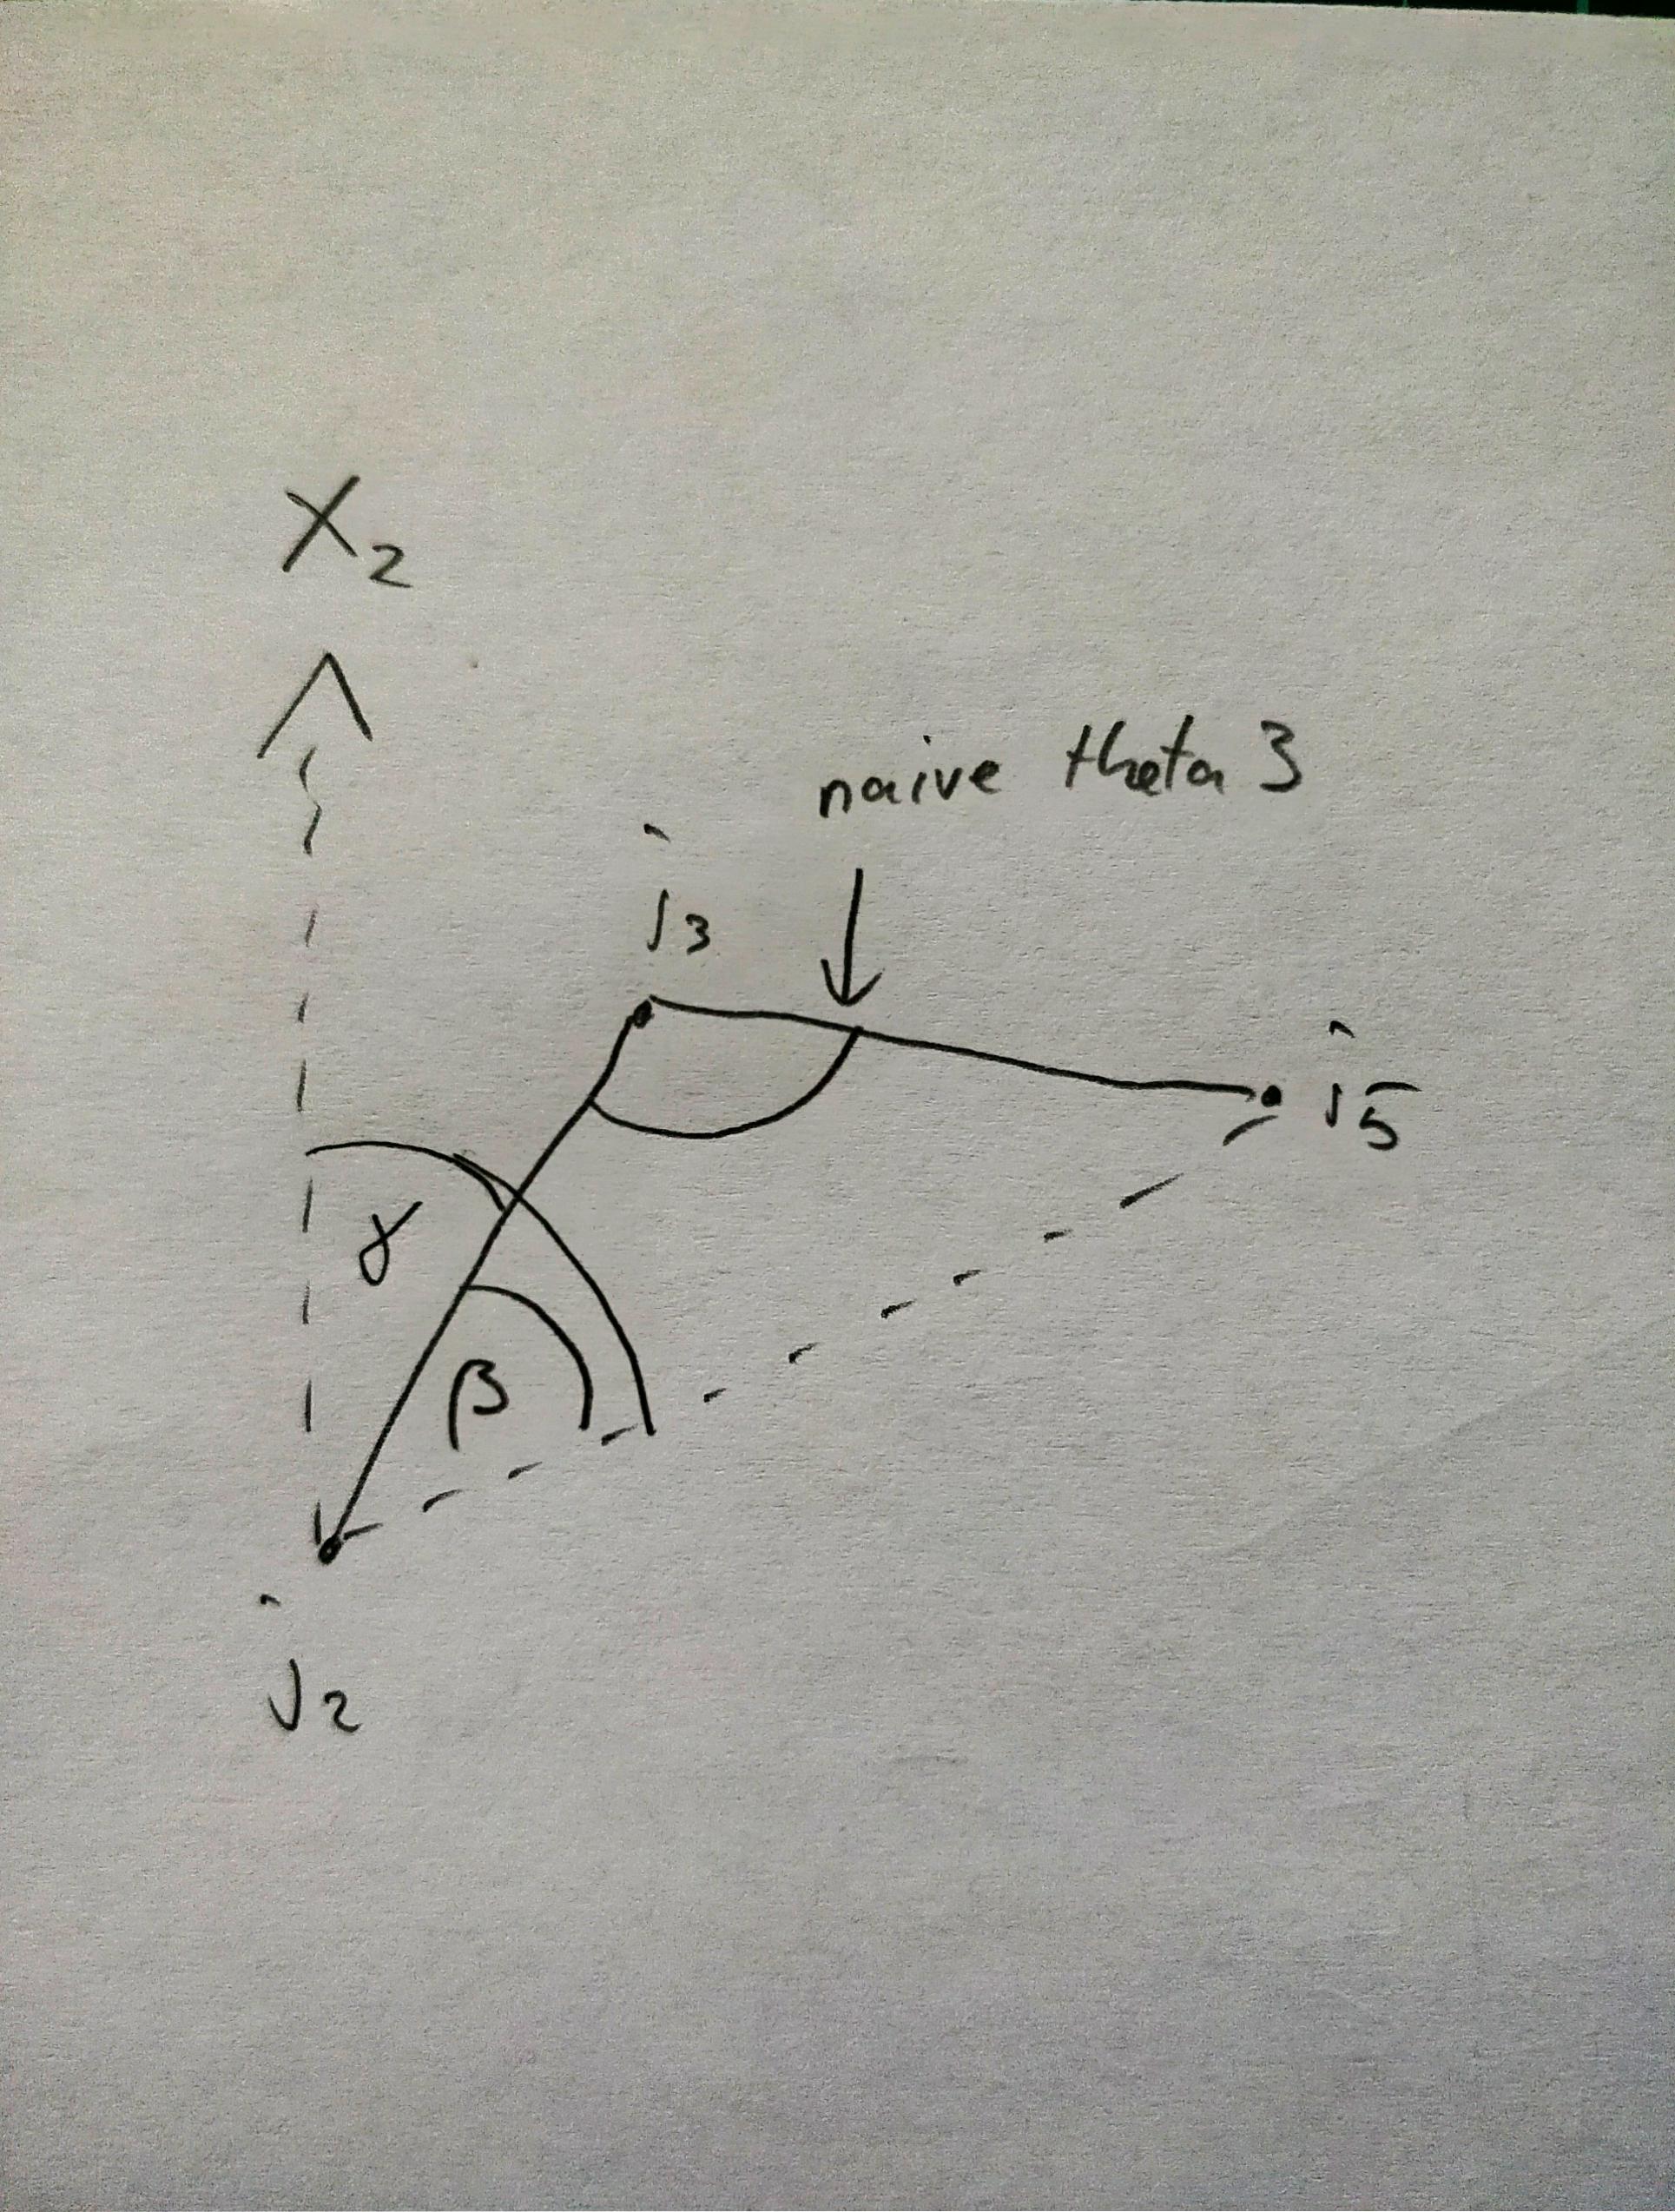 X₂
naive theta 3
j₃
j₅
γ
β
j₂